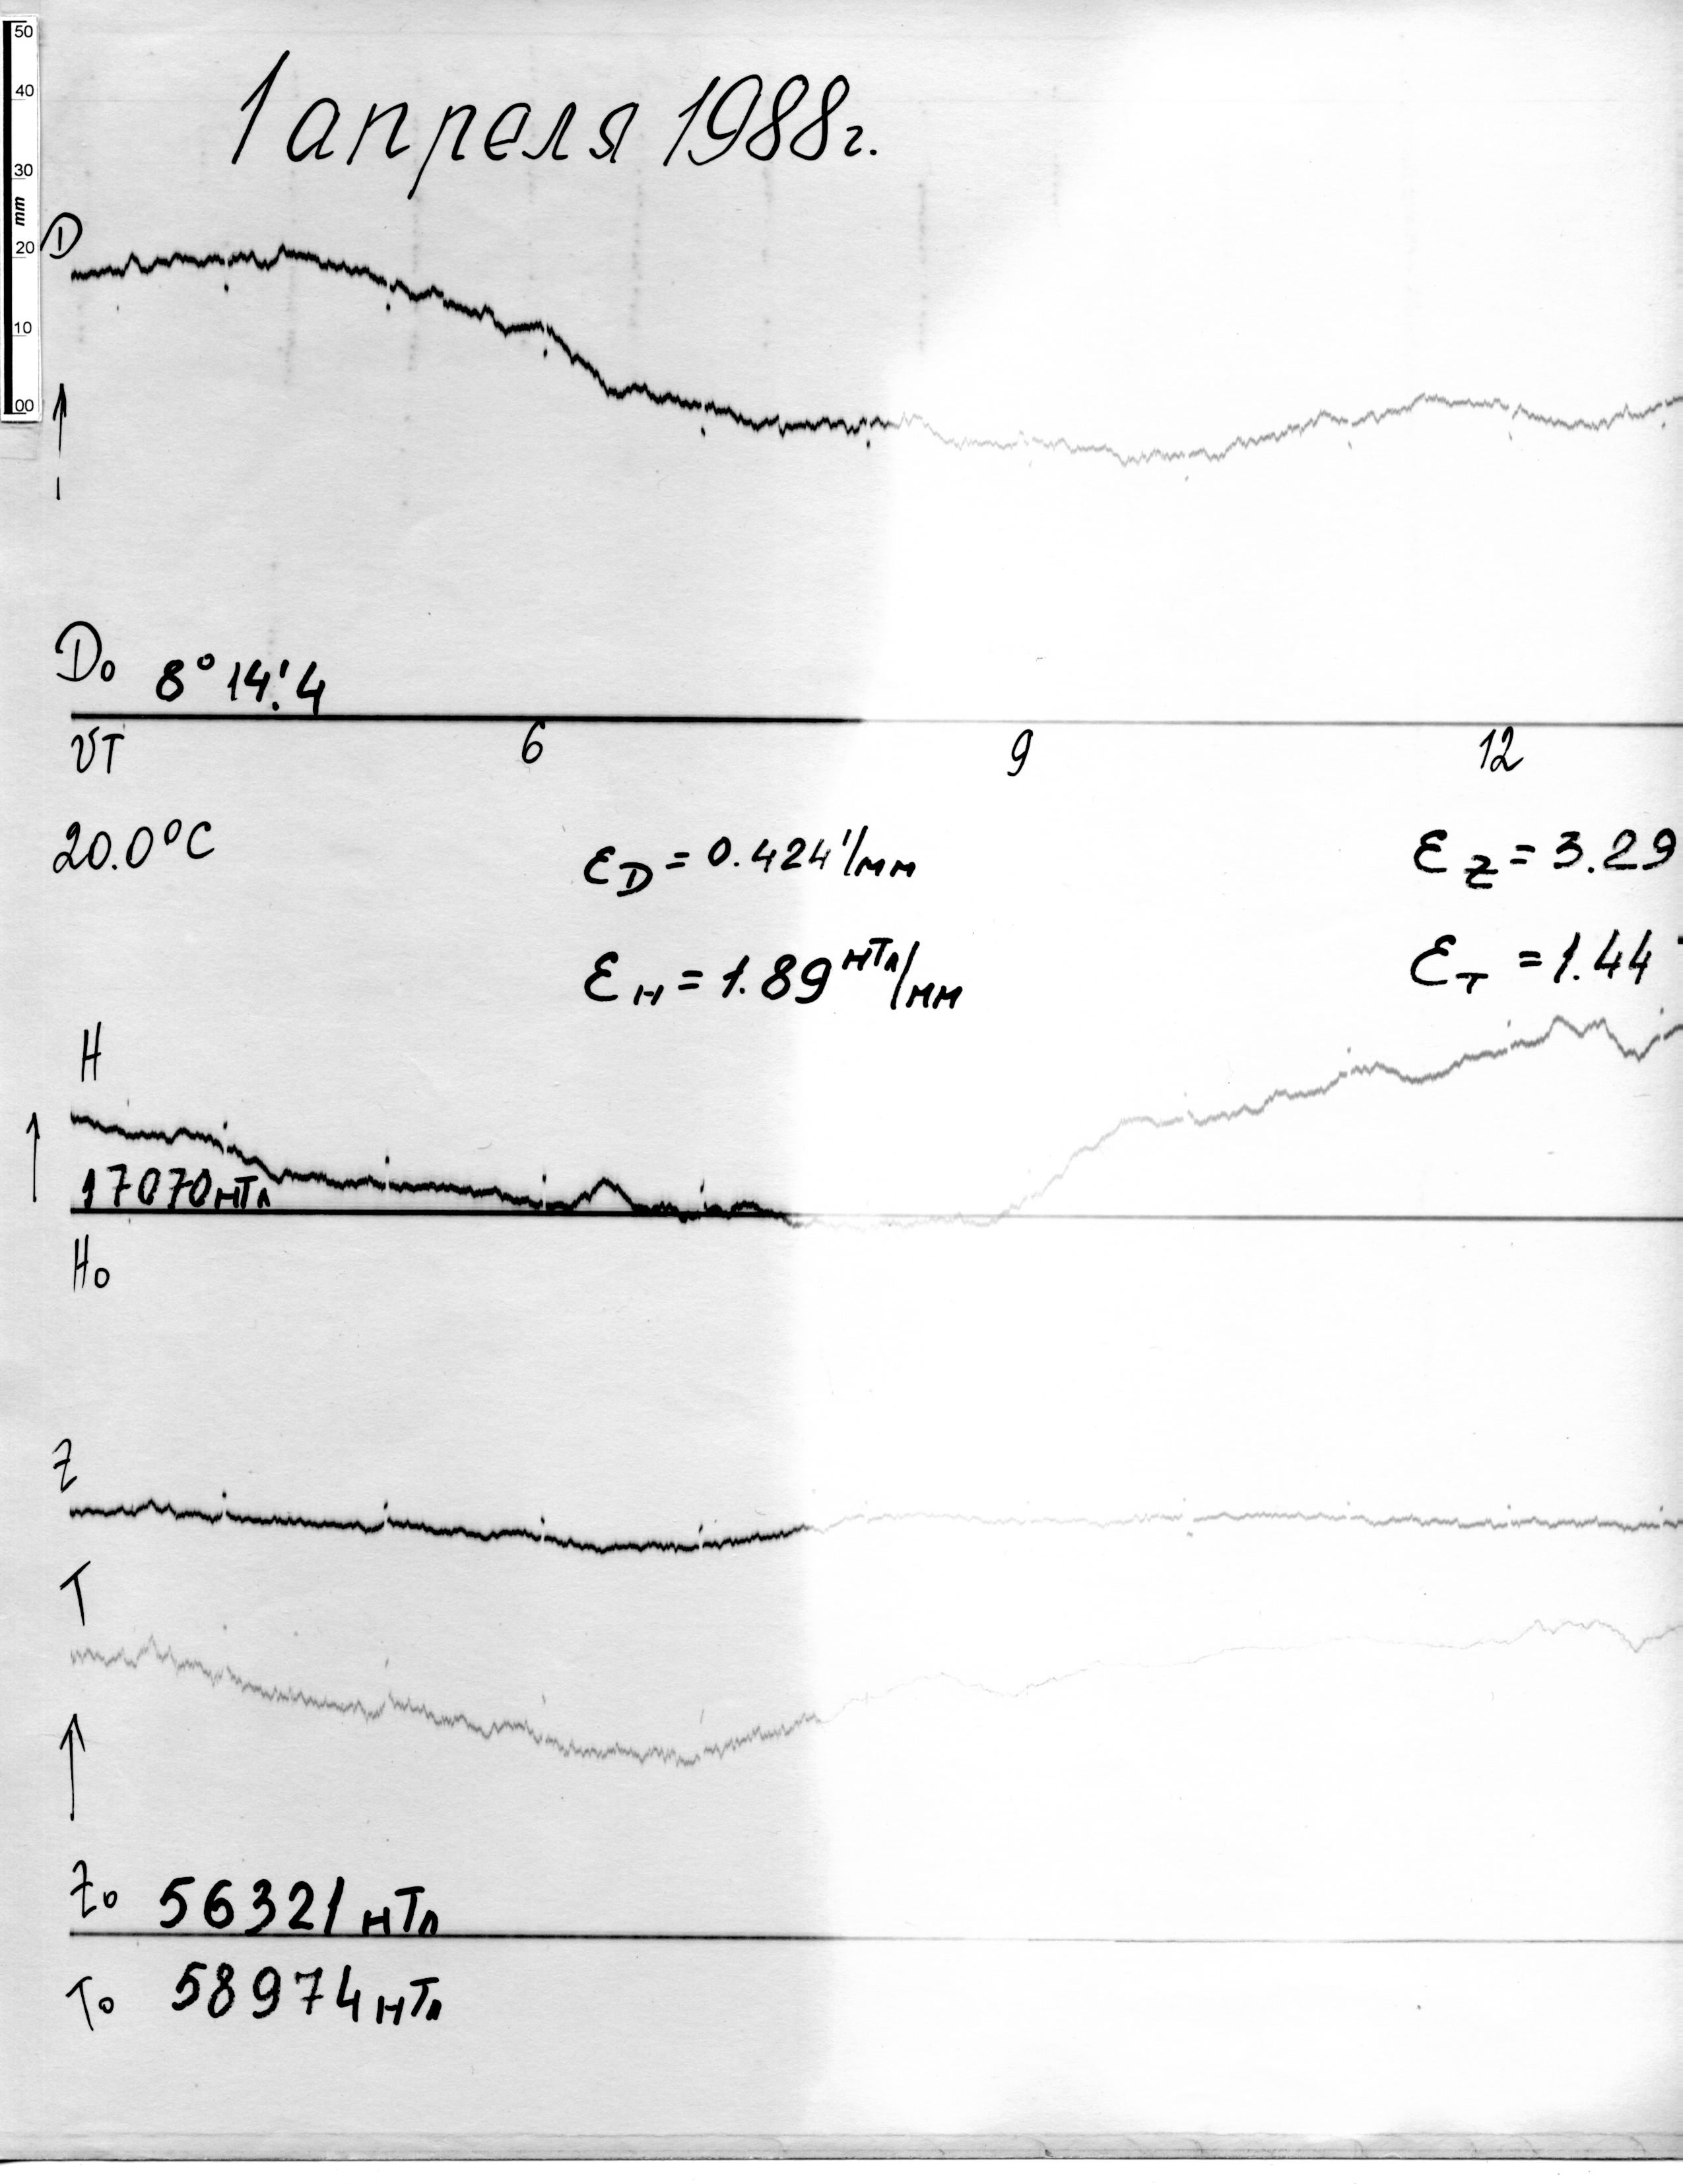 50
40
30
mm
20
10
00
1 апреля 1988г.
D
D₀ 8°14.'4
UT 6 9 12
20.0°C
ε_D = 0.424'/мм
ε_Z = 3.29
ε_H = 1.89 нТл/мм
ε_T = 1.44
H
17070 нТл
H₀
Z
T
Z₀ 56321 нТл
T₀ 58974 нТл